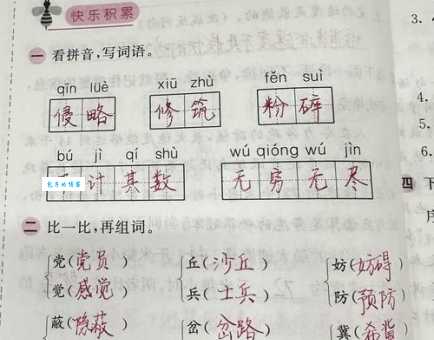 快乐积累
一 看拼音,写词语。
qīn lüè xiū zhù fěn suì
侵略 修筑 粉碎
bú jì qí shù wú qióng wú jìn
计其数 无穷无尽
二 比一比,再组词。
党(党员) 丘(沙丘) 妨(妨碍)
觉(感觉) 兵(士兵) 防(预防)
蔽(隐蔽) 岔(岔路) 冀(希冀)
3.
4.
5.
6.
四 下